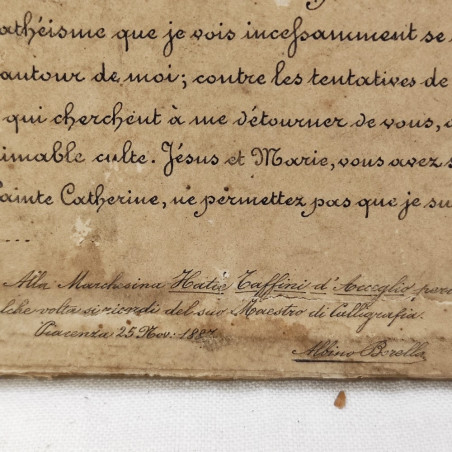 athéisme que je vois incessamment se
autour de moi; contre les tentatives de
qui cherchent à me détourner de vous,
imable culte. Jésus et Marie, vous avez s
Sainte Catherine, ne permettez pas que je su
....
Alla Marchesina Hatie Taffini d'Acceglio perc
lche volta si ricordi del suo Maestro di Calligrafia.
Piacenza 25 Nov. 1887
Albino Borella